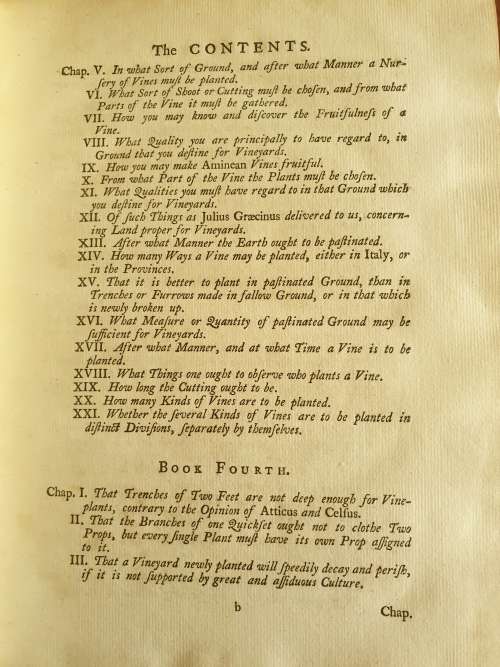 The CONTENTS.
Chap. V. In what Sort of Ground, and after what Manner a Nur-
ſery of Vines muſt be planted.
VI. What Sort of Shoot or Cutting muſt be choſen, and from what
Parts of the Vine it muſt be gathered.
VII. How you may know and diſcover the Fruitfulneſs of a
Vine.
VIII. What Quality you are principally to have regard to, in
Ground that you deſtine for Vineyards.
IX. How you may make Aminean Vines fruitful.
X. From what Part of the Vine the Plants muſt be choſen.
XI. What Qualities you muſt have regard to in that Ground which
you deſtine for Vineyards.
XII. Of ſuch Things as Julius Græcinus delivered to us, concern-
ing Land proper for Vineyards.
XIII. After what Manner the Earth ought to be paſtinated.
XIV. How many Ways a Vine may be planted, either in Italy, or
in the Provinces.
XV. That it is better to plant in paſtinated Ground, than in
Trenches or Furrows made in fallow Ground, or in that which
is newly broken up.
XVI. What Meaſure or Quantity of paſtinated Ground may be
ſufficient for Vineyards.
XVII. After what Manner, and at what Time a Vine is to be
planted.
XVIII. What Things one ought to obſerve who plants a Vine.
XIX. How long the Cutting ought to be.
XX. How many Kinds of Vines are to be planted.
XXI. Whether the ſeveral Kinds of Vines are to be planted in
diſtinct Diviſions, ſeparately by themſelves.
BOOK FOURTH.
Chap. I. That Trenches of Two Feet are not deep enough for Vine-
plants, contrary to the Opinion of Atticus and Celſus.
II. That the Branches of one Quickſet ought not to clothe Two
Props, but every ſingle Plant muſt have its own Prop aſſigned
to it.
III. That a Vineyard newly planted will ſpeedily decay and periſh,
if it is not ſupported by great and aſſiduous Culture.
b
Chap.